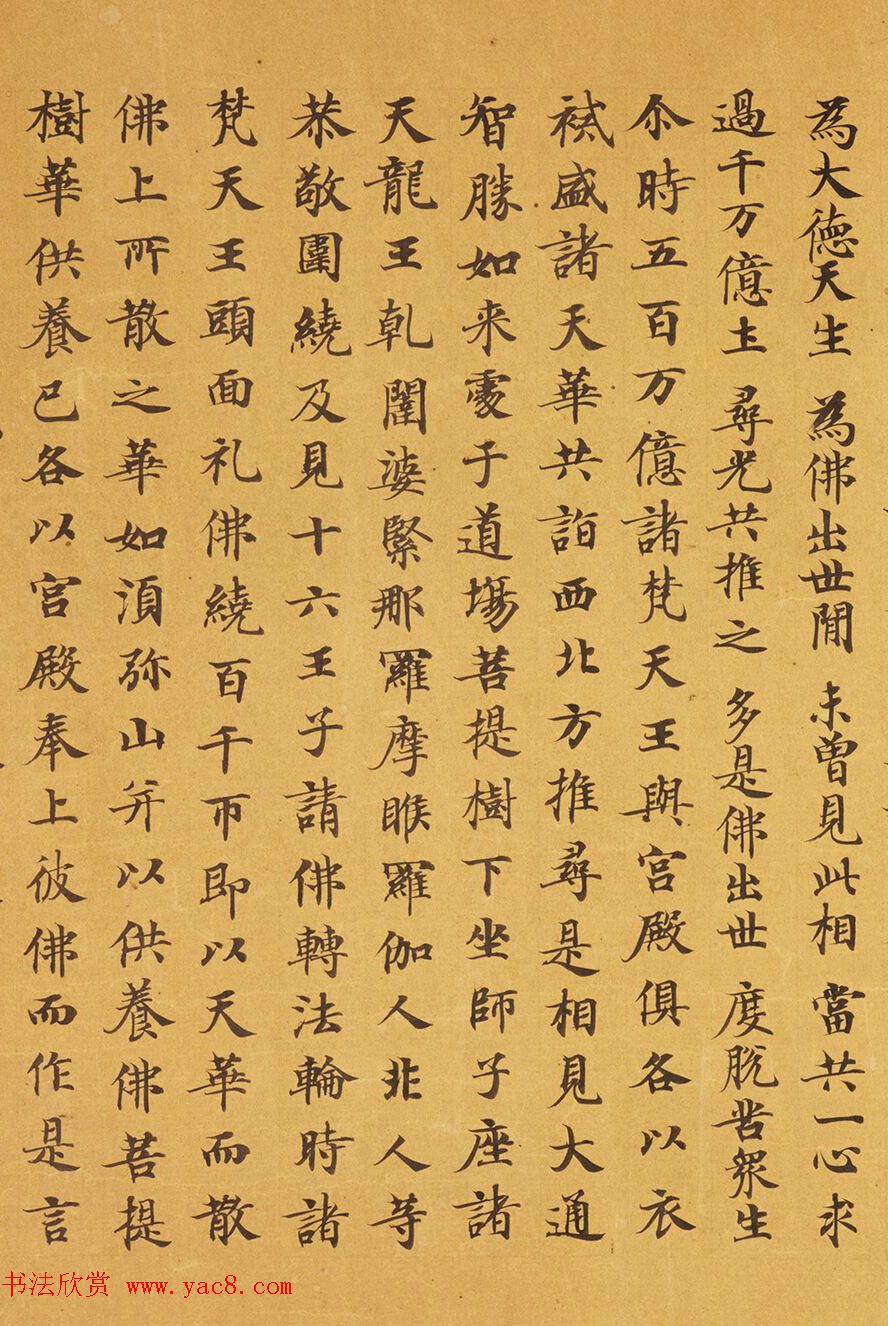 為大德天生　為佛出世間　未曾見此相　當共一心求
過千万億土　尋光共推之　多是佛出世　度脫苦衆生
尒時五百万億諸梵天王與宮殿俱各以衣
裓盛諸天華共詣西北方推尋是相見大通
智勝如来處于道場菩提樹下坐師子座諸
天龍王乹闥婆緊那羅摩睺羅伽人非人等
恭敬圍繞及見十六王子請佛轉法輪時諸
梵天王頭面礼佛繞百千帀即以天華而散
佛上所散之華如湏弥山并以供養佛菩提
樹華供養已各以宮殿奉上彼佛而作是言
书法欣赏 www.yac8.com